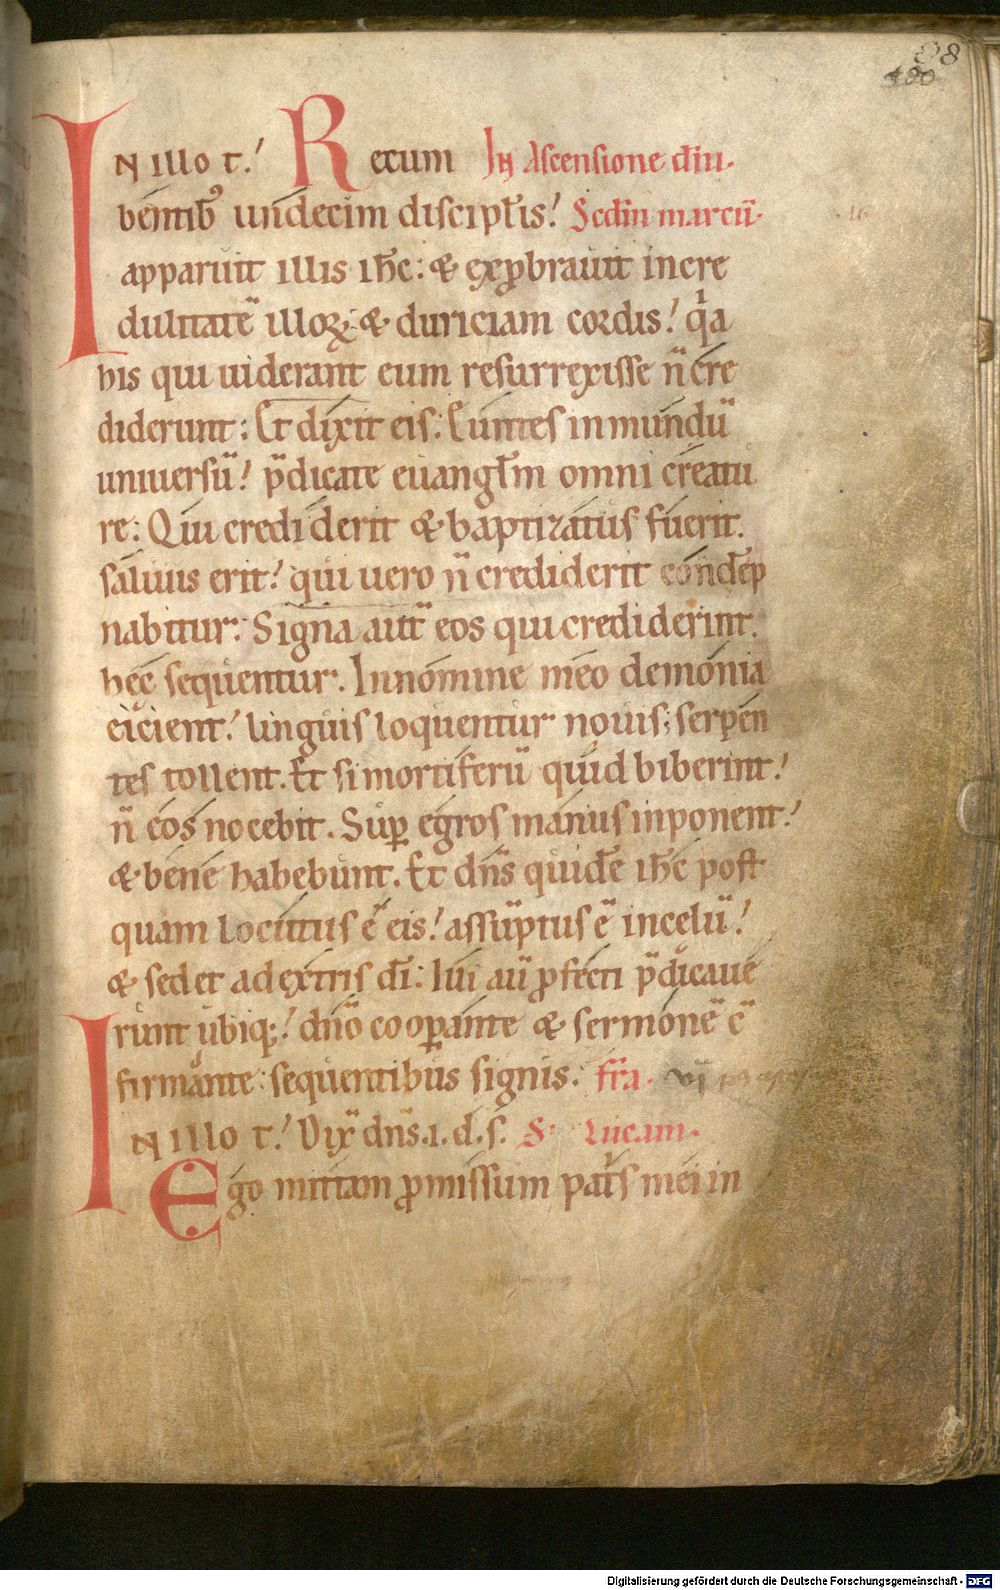 98
100
IN illo t. Recum In Ascensione dn̄i.
bentib; undecim discipl̄is. Scdm̄ marcū.
apparuit illis ih̄c: & exprobrauit incre
dulitatē illoꝝ & duriciam cordis. qͥa
his qui uiderant eum resurrexisse n̄ cre
diderunt: Et dixit eis: Euntes in mundū
uniuersū! p̄dicate euangl̄m omni creatu
re: Qui crediderit & baptizatus fuerit.
saluus erit! qui uero n̄ crediderit condēp
nabitur: Signa autē eos qui crediderint.
hec sequentur. In nomine meo demonia
eicient! linguis loquentur nouis; serpen
tes tollent. Et si mortiferū quid biberint!
n̄ eos nocebit. Suꝑ egros manus inponent!
& bene habebunt. Et dn̄s quidē ih̄c post
quam locutus ē eis! assūptus ē in celū!
& sedet ad extris dī: Illi aū ꝓfecti p̄dicaue
runt ubiq;! dn̄o cooꝑante & sermonē c̄
firmante: sequentibus signis. fr̄a. vj
IN illo t. Dix̄ dn̄s .i. d. s. S. Lucam.
Ego mittam ꝓmissum pat̄s mei in
Digitalisierung gefördert durch die Deutsche Forschungsgemeinschaft - DFG